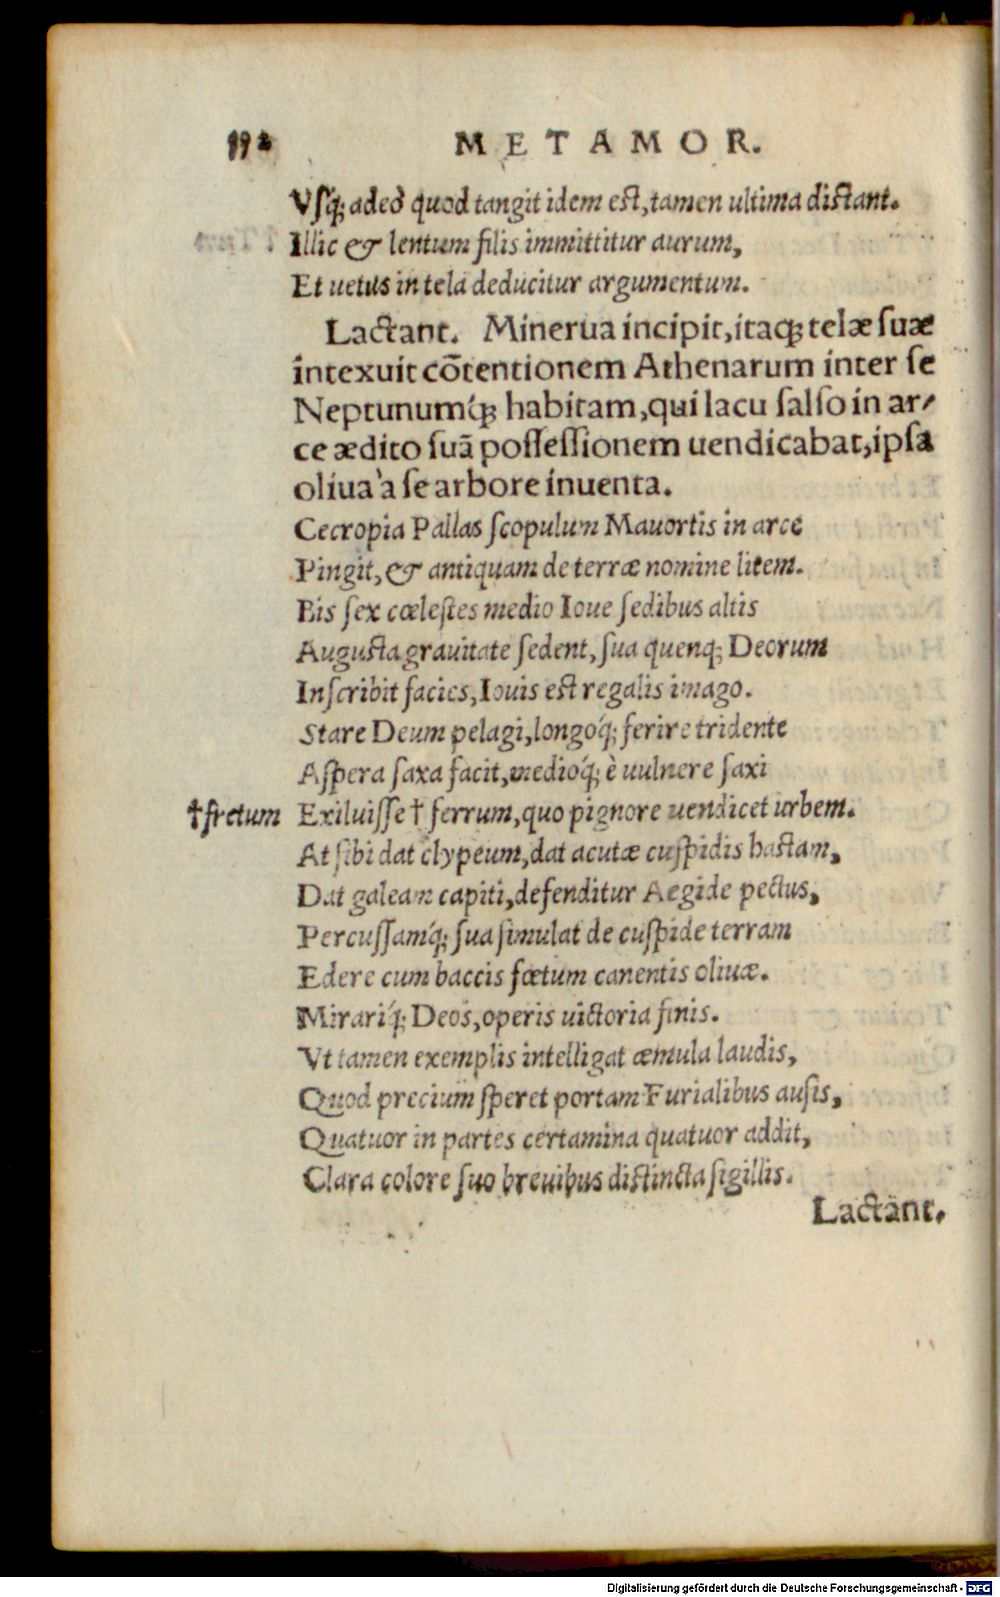 192 METAMOR.
Vſq́; adeò quod tangit idem eſt, tamen ultima diſtant.
Illic & lentum filis immittitur aurum,
Et uetus in tela deducitur argumentum.
Lactant. Minerua incipit, itaq; telæ ſuæ
intexuit cõtentionem Athenarum inter ſe
Neptunumq́; habitam, qui lacu ſalſo in ar-
ce ædito ſuã poſſeſſionem uendicabat, ipſa
oliua à ſe arbore inuenta.
Cecropia Pallas ſcopulum Mauortis in arce
Pingit, & antiquam de terræ nomine litem.
Bis ſex cœleſtes medio Ioue ſedibus altis
Auguſta grauitate ſedent, ſua quenq; Deorum
Inſcribit facies, Iouis eſt regalis imago.
Stare Deum pelagi, longoq́; ferire tridente
Aſpera ſaxa facit, medioq́; è uulnere ſaxi
†fretum Exiluiſſe † ferrum, quo pignore uendicet urbem.
At ſibi dat clypeum, dat acutæ cuſpidis haſtam,
Dat galeam capiti, defenditur Aegide pectus,
Percuſſamq́; ſua ſimulat de cuſpide terram
Edere cum baccis fœtum canentis oliuæ.
Mirariq́; Deos, operis uictoria finis.
Vt tamen exemplis intelligat æmula laudis,
Quod precium ſperet portam Furialibus auſis,
Quatuor in partes certamina quatuor addit,
Clara colore ſuo breuibus diſtincta ſigillis.
Lactant.
Digitalisierung gefördert durch die Deutsche Forschungsgemeinschaft - DFG